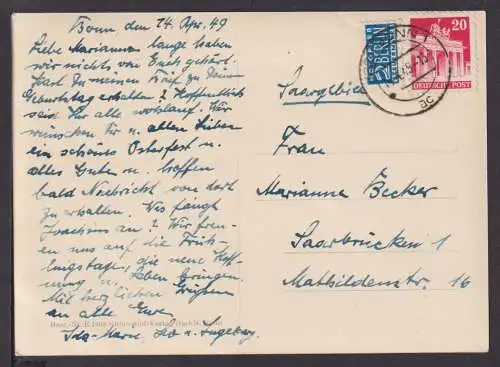 Bonn, den 14. Apr. 49
Liebe Marianne, lange haben
wir nichts von Euch gehört.
Hast Du meinen Brief zu Deinem
Geburtstag erhalten? Hoffentlich
seid Ihr alle wohlauf. Wir
wünschen Dir u. allen Lieben
ein schönes Osterfest u.
alles Gute u. hoffen
bald Nachricht von dort
zu erhalten. Was fängt
Joachim an? Wir freu-
en uns auf die Früh-
lingstage, die neue Hoff-
nung u. Leben bringen.
Mit herzlichen Grüßen
an alle Eure
Ida-Marie, u. Ingeborg.
NOTOPFER
2 BERLIN
STEUERMARKE
20
DEUTSCHE POST
BONN 1
Saargebiet
Frau
Marianne Becker
Saarbrücken 1
Mathildenstr. 16